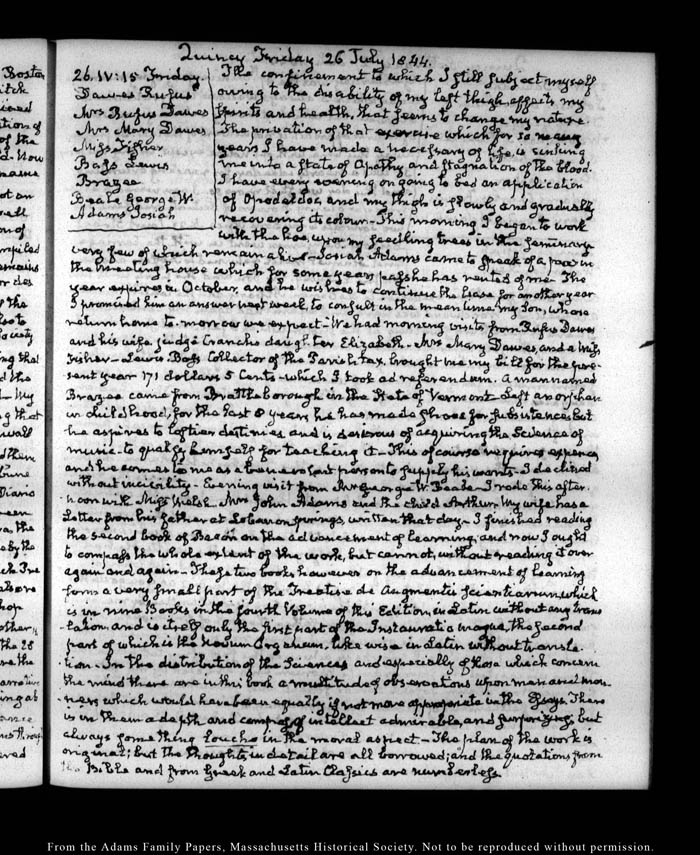 Quincy Friday 26 July 1844.
26. IV:15 Friday.
Dawes Rufus
Mrs Rufus Dawes
Mrs Mary Dawes
Miss Fisher
Bass Lewis
Brazee
Beale George W.
Adams Josiah
The confinement to which I still subject myself
owing to the disability of my left thigh, affects my
spirits and health, that seems to change my nature.
The privation of that exercise which for so many
years I have made a necessary of life, is sinking
me into a state of Apathy and stagnation of the blood.
I have every evening on going to bed an application
of Opodeldoc, and my thigh is slowly and gradually
recovering its colour - This morning I began to work
with the hoe, upon my seedling trees in the seminary
very few of which remain alive - Josiah Adams came to speak of a pew in
the meeting house which for some years past he has rented of me. The
year expires in October, and he wishes to continue the lease for another year
I promised him an answer next week, to consult in the mean time, my Son, whose
return home to-morrow we expect - We had morning visits from Rufus Dawes
and his wife, judge Cranch's daughter Elizabeth - Mrs Mary Dawes, and a Miss
Fisher - Lewis Bass Collector of the Parish tax, brought me my bill for the pre-
sent year 171 dollars 5 Cents - which I took ad referendum. A man named
Brazee came from Brattleborough in the State of Vermont. Left an orphan
in childhood, for the last 8 years he has made shoes for subsistence, but
he aspires to loftier destinies and is desirous of acquiring the science of
music, to qualify himself for teaching it - This of course requires expence,
and he comes to me as a benevolent person to supply his wants - I declined
without incivility - Evening visit from Mr George W. Beale - I rode this after-
noon with Miss Welsh, Mrs John Adams and the child Arthur. My wife has a
Letter from his father at Lebanon springs, written that day - I finished reading
the second book of Bacon on the advancement of learning, and now I ought
to compass the whole extent of the work, but cannot, without reading it over
again and again - These two books however on the advancement of learning
form a very small part of the Treatise de Augmentis Scientiarum, which
is in nine Books in the fourth Volume of this Edition, in Latin without any trans
lation, and is itself only the first part of the Instauratio magna, the second
part of which is the Novum Organum, likewise in Latin without transla-
tion - In the distribution of the Sciences and especially of those which concern
the mind there are in this book a multitude of observations upon man and man-
ners which would have been equally if not more appropriate in the Essays. There
is in them a depth and compass of intellect admirable, and surprizing; but
always something louche in the moral aspect - The plan of the work is
original; but the thoughts in detail are all borrowed; and the quotations from
the Bible and from Greek and Latin Classics are numberless.
From the Adams Family Papers, Massachusetts Historical Society. Not to be reproduced without permission.